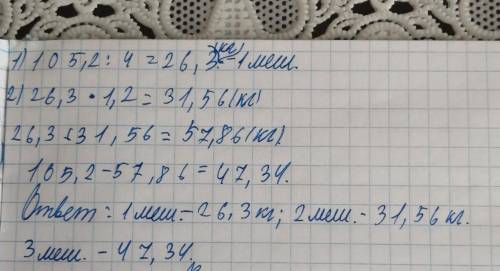 1) 105,2 : 4 = 26,3 (кг) - 1 меш.
2) 26,3 · 1,2 = 31,56 (кг)
26,3 + 31,56 = 57,86 (кг)
105,2 - 57,86 = 47,34.
Ответ: 1 меш. - 26,3 кг; 2 меш. - 31,56 кг.
3 меш. - 47,34.